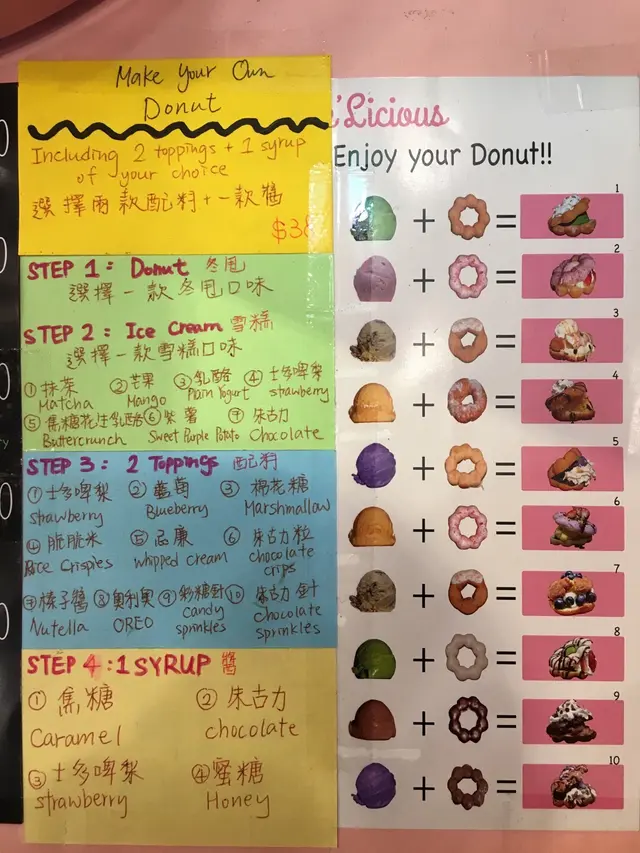 Make Your Own
Donut
Including 2 toppings + 1 syrup
of your choice
選擇兩款配料+一款醬
$38
STEP 1: Donut 冬甩
選擇一款冬甩口味
STEP 2: Ice Cream 雪糕
選擇一款雪糕口味
① 抹茶 ② 芒果 ③ 乳酪 ④ 士多啤梨
Matcha Mango Plain Yogurt strawberry
⑤ 焦糖花生乳酪 ⑥ 紫薯 ⑦ 朱古力
Buttercrunch Sweet Purple Potato Chocolate
STEP 3: 2 Toppings 配料
① 士多啤梨 ② 藍莓 ③ 棉花糖
strawberry Blueberry Marshmallow
④ 脆脆米 ⑤ 忌廉 ⑥ 朱古力粒
Rice Crispies whipped cream chocolate
crips
⑦ 榛子醬 ⑧ 奧利奧 ⑨ 彩糖針 ⑩ 朱古力針
Nutella OREO candy chocolate
sprinkles sprinkles
STEP 4: 1 SYRUP 醬
① 焦糖 ② 朱古力
Caramel chocolate
③ 士多啤梨 ④ 蜜糖
strawberry Honey
'Licious
Enjoy your Donut!!
1
+ =
2
+ =
3
+ =
4
+ =
5
+ =
6
+ =
7
+ =
8
+ =
9
+ =
10
+ =